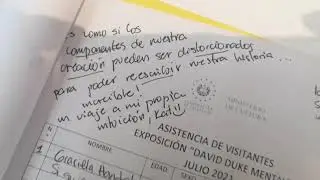 es como si los
componentes de nuestra
creación pueden ser distorcionados
para poder reescribir nuestra historia...
increíble!
un viaje a mi propia
intuición,
MINISTERIO
ASISTENCIA DE VISITANTES
EXPOSICIÓN "DAVID DUKE MENTAL
JULIO 2021
N
NOMBRE
EDAD
SEXO
1